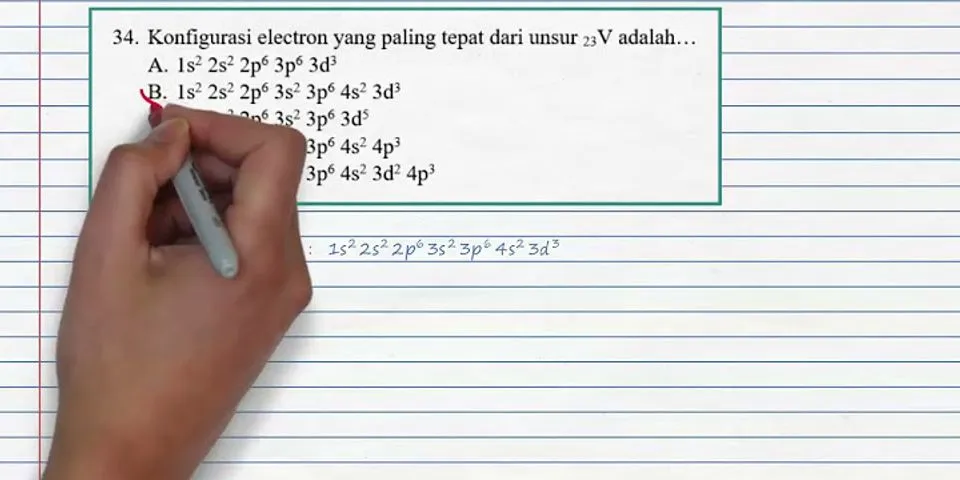 34. Konfigurasi electron yang paling tepat dari unsur ₂₃V adalah…
A. 1s² 2s² 2p⁶ 3p⁶ 3d³
B. 1s² 2s² 2p⁶ 3s² 3p⁶ 4s² 3d³
3s² 3p⁶ 3d⁵
3p⁶ 4s² 4p³
3p⁶ 4s² 3d² 4p³
: 1s² 2s² 2p⁶ 3s² 3p⁶ 4s² 3d³